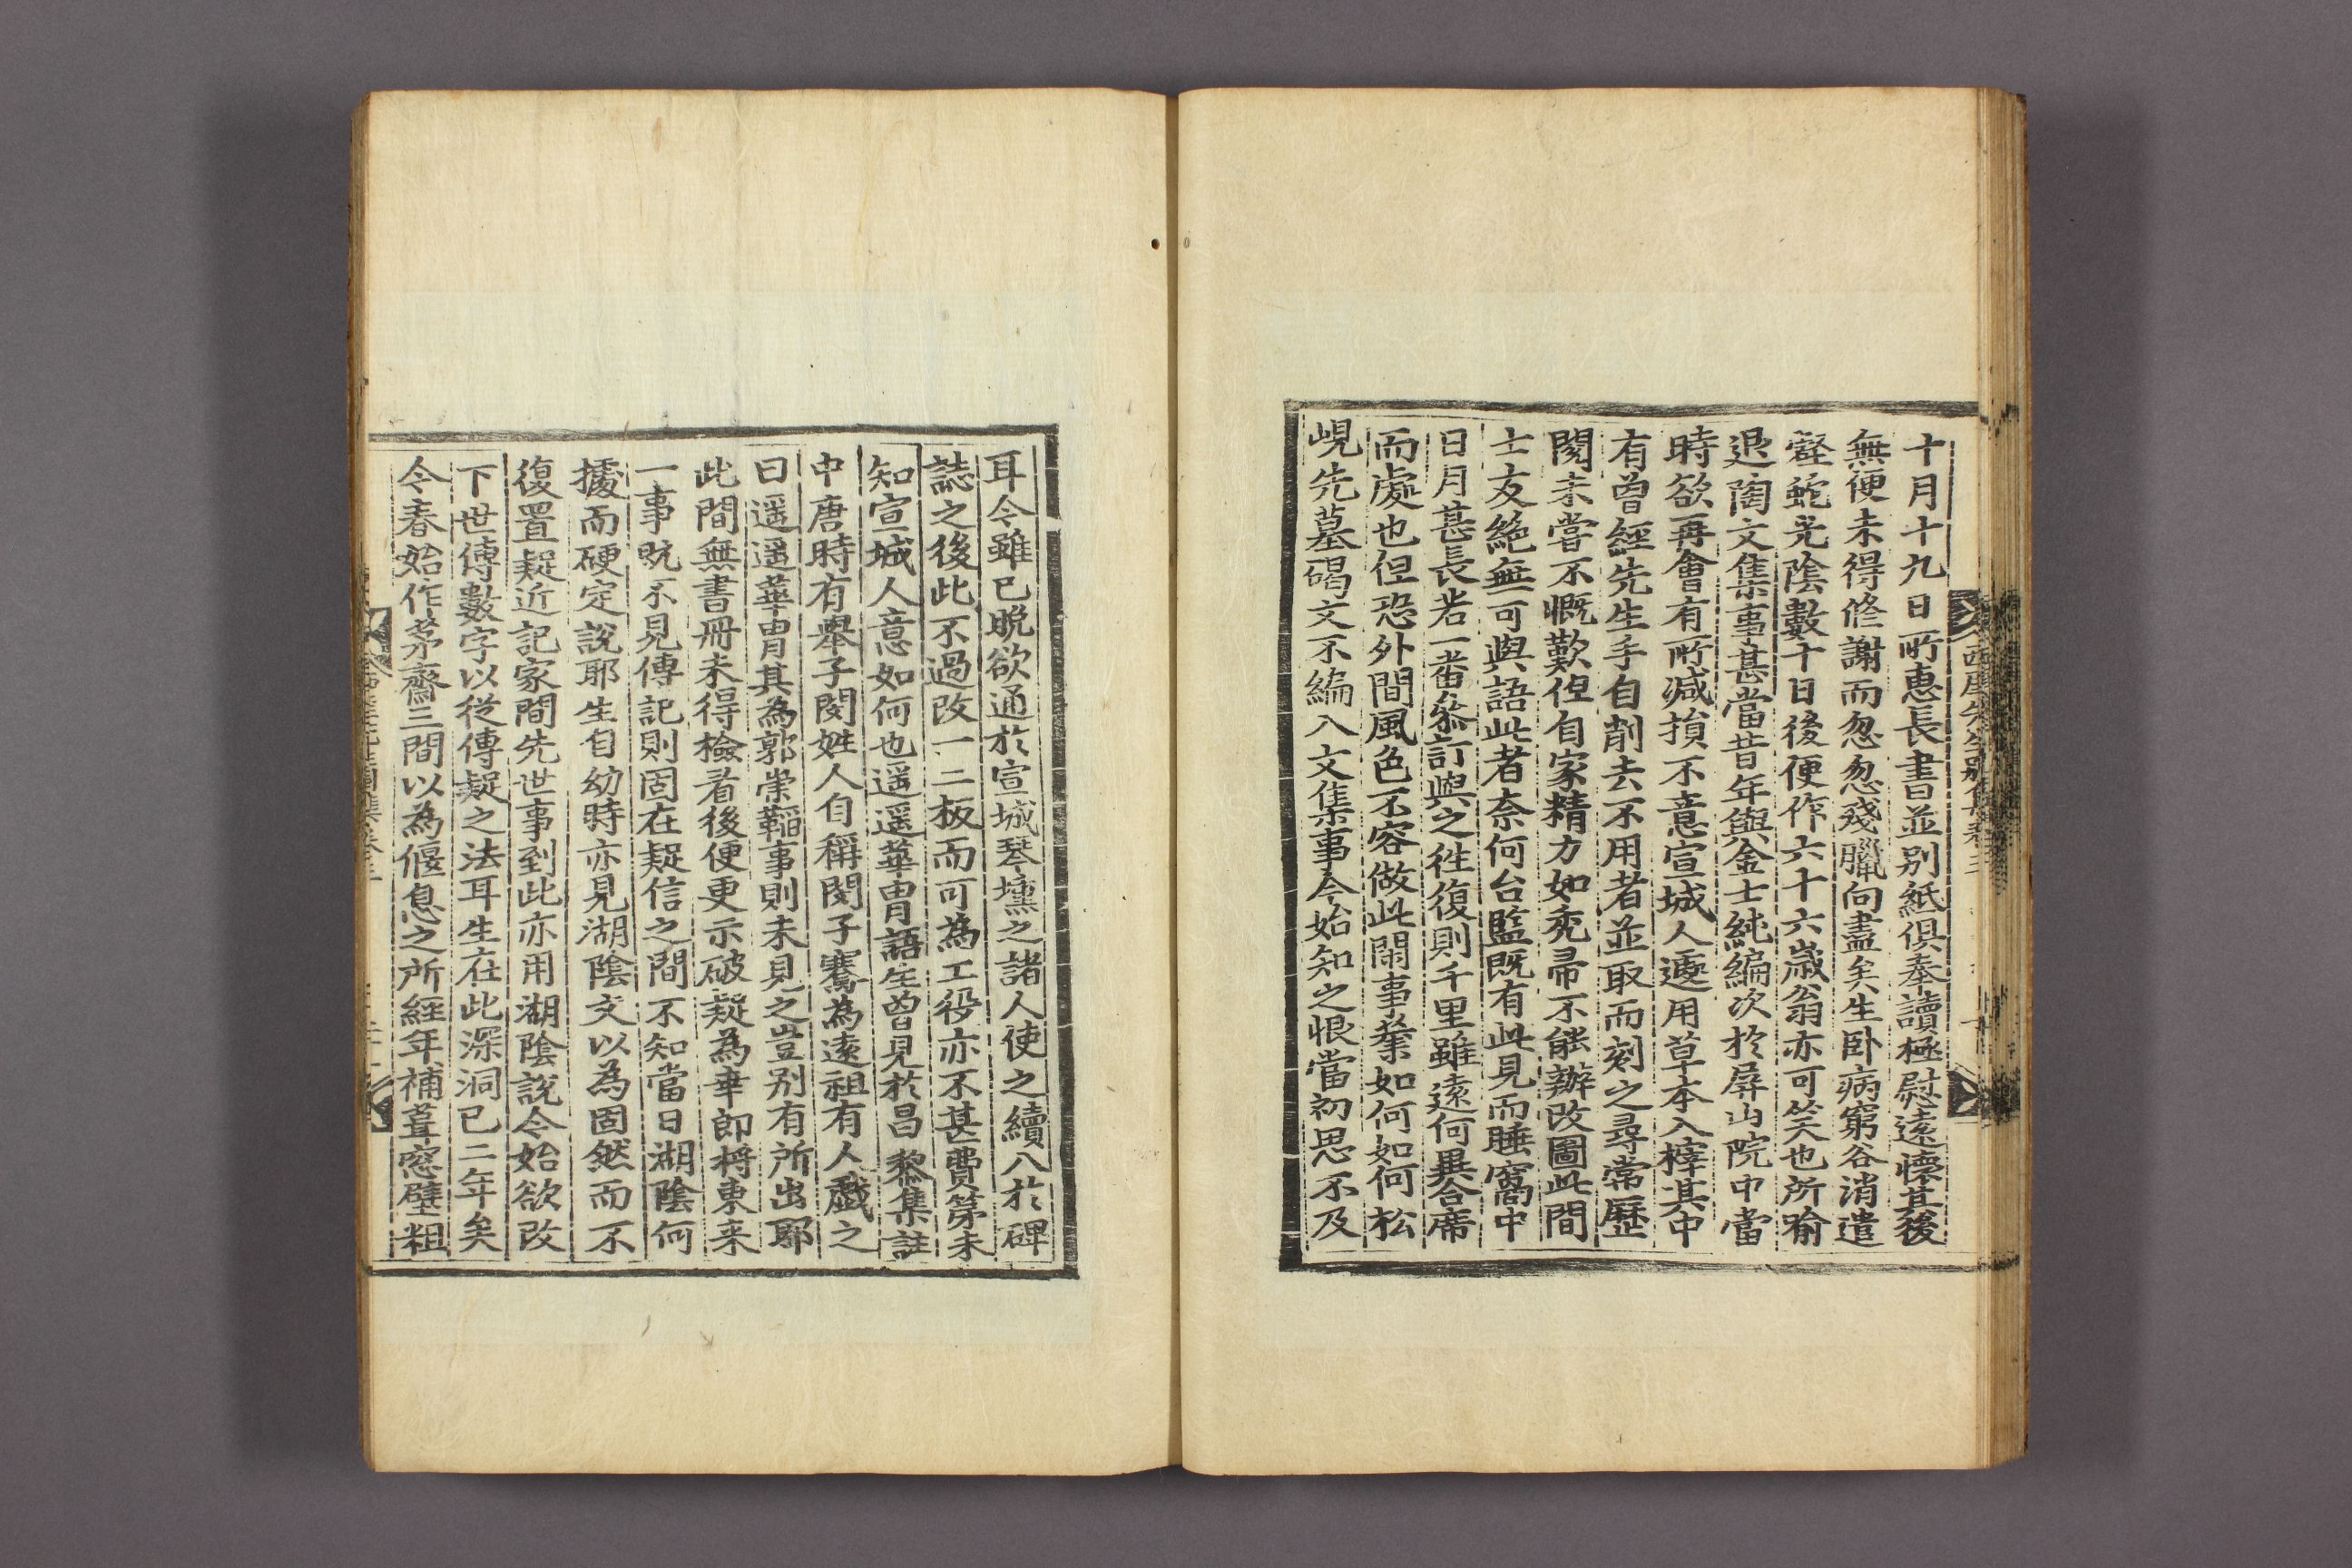 十月十九日所惠長書並别紙俱奉讀極慰遠懷其後
無便未得修謝而忽忽殘臘向盡矣生卧病窮谷消遣
壑蛇光陰數十日後便作六十六歲翁亦可笑也所喩
退陶文集事甚當昔年與金士純編次於屛山院中當
時欲再會有所减損不意宣城人遽用草本入梓其中
有曾經先生手自削去不用者並取而刻之尋常歷
閱未嘗不慨歎但自家精力如禿帚不能辦改圖此間
士友絶無可與語此者奈何台監旣有此見而睡窩中
日月甚長若一番叅訂與之往復則千里雖遠何異合席
而處也但恐外間風色不容做此閑事業如何如何松
峴先墓碣文不編入文集事今始知之恨當初思不及
耳今雖已晩欲通於宣城琴壎之諸人使之續入於碑
誌之後此不過改一二板而可為工役亦不甚費第未
知宣城人意如何也遥遥華胄語生曾見於昌黎集註
中唐時有舉子閔姓人自稱閔子騫為遠祖有人戱之
曰遥遥華胄其為郭崇韜事則未見之豈别有所出耶
此間無書冊未得檢看後便更示破疑為幸卽將東来
一事旣不見傳記則固在疑信之間不知當日湖陰何
據而硬定說耶生自幼時亦見湖陰文以為固然而不
復置疑近記家間先世事到此亦用湖陰說今始欲改
下世傳數字以從傳疑之法耳生在此深洞已二年矣
今春始作茅齋三間以為偃息之所經年補葺窓壁粗